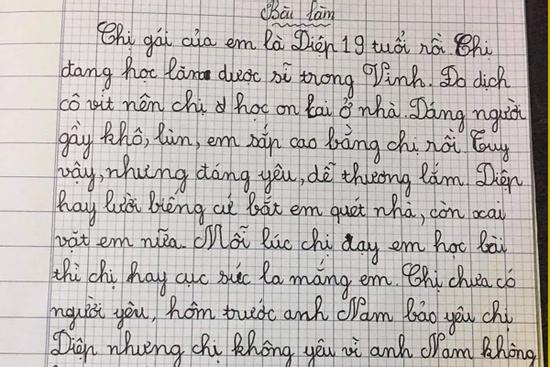 Bài làm
Chị gái của em là Diệp 19 tuổi rồi. Chị
đang học làm dược sĩ trong Vinh. Do dịch
cô vít nên chị học on lai ở nhà. Dáng người
gầy khô, lùn, em sắp cao bằng chị rồi. Tuy
vậy, nhưng đáng yêu, dễ thương lắm. Diệp
hay lười biếng cứ bắt em quét nhà, còn xai
vặt em nữa. Mỗi lúc chị dạy em học bài
thì chị hay cục súc la mắng em. Chị chưa có
người yêu, hôm trước anh Nam bảo yêu chị
Diệp nhưng chị không yêu vì anh Nam không